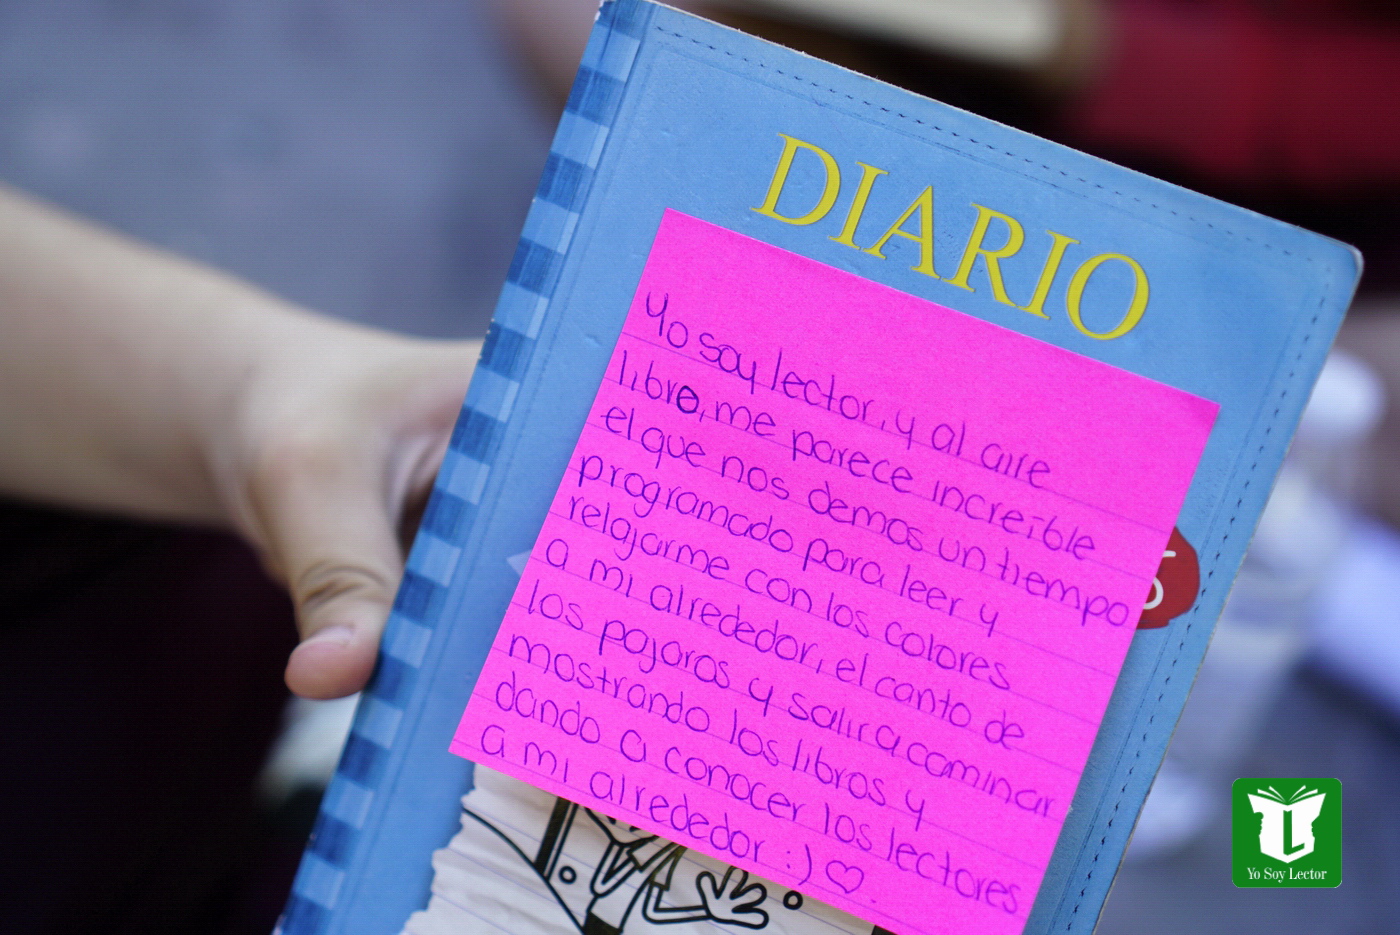 DIARIO
Yo soy lector, y al aire
libro, me parece increíble
el que nos demos un tiempo
programado para leer y
relajarme con los colores
a mi alrededor, el canto de
los pajaros y salir a caminar
mostrando los libros y
dando a conocer los lectores
a mi alrededor :) ♡
Yo Soy Lector